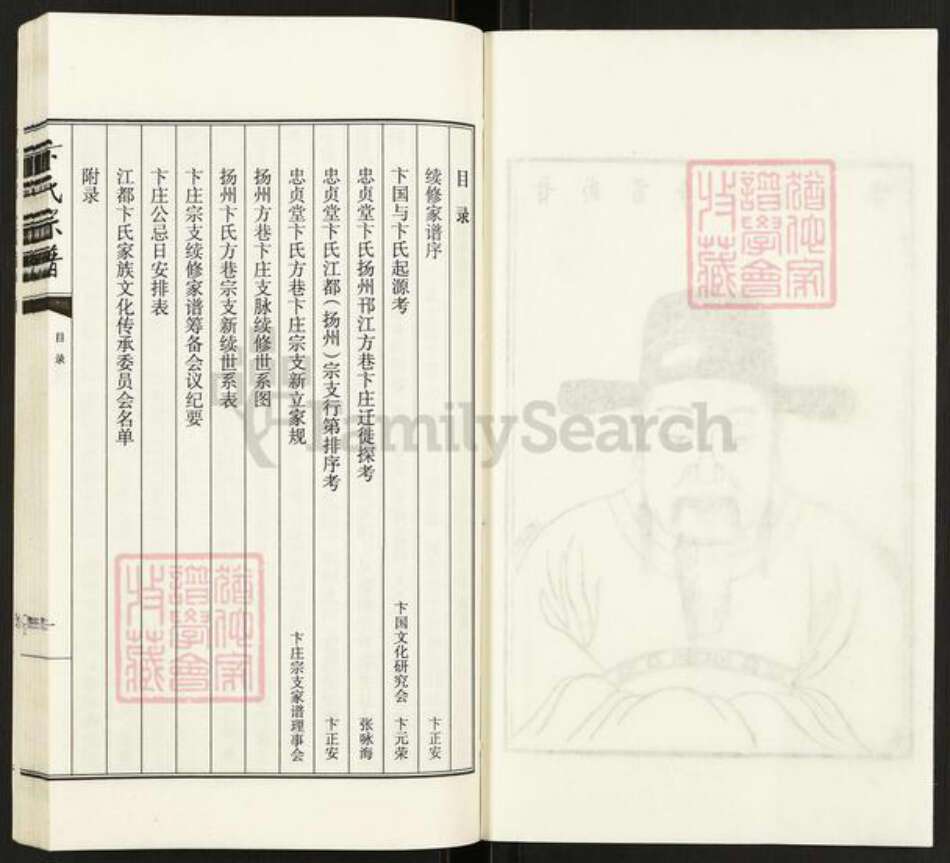 目录
续修家谱序 卞正安
卞国与卞氏起源考 卞国文化研究会 卞元荣
忠贞堂卞氏扬州邗江方巷卞庄迁徙探考 张咏海
忠贞堂卞氏江都（扬州）宗支行第排序考 卞正安
忠贞堂卞氏方巷卞庄宗支新立家规 卞庄宗支家谱理事会
扬州方巷卞庄支脉续修世系图
扬州卞氏方巷宗支新续世系表
卞庄宗支续修家谱筹备会议纪要
卞庄公忌日安排表
江都卞氏家族文化传承委员会名单
附录
卞氏宗谱
目录
FamilySearch